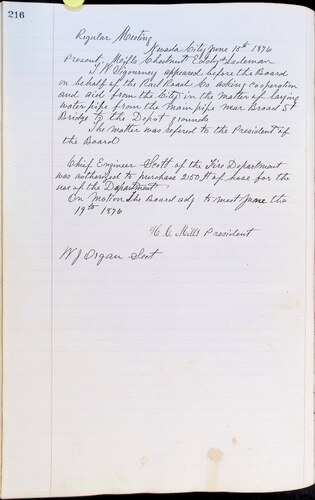 216
Regular Meeting
Nevada City June 15th 1876
Present, Mills Chestnut Eddy &
T W Sigourney appeared before the Board
on behalf of the Rail Road Co asking cooperation
and aid from the City in the matter of laying
water pipe from the main pipe near Broad St
Bridge to the Depot grounds
The matter was refered to the President of
the Board
Chief Engineer Scott of the Fire Department
was authorized to purchase 2150 ft of hose for the
use of the Department
On Motion the Board adj to meet June the
19th 1876
H C Mills President
W J Organ Sect